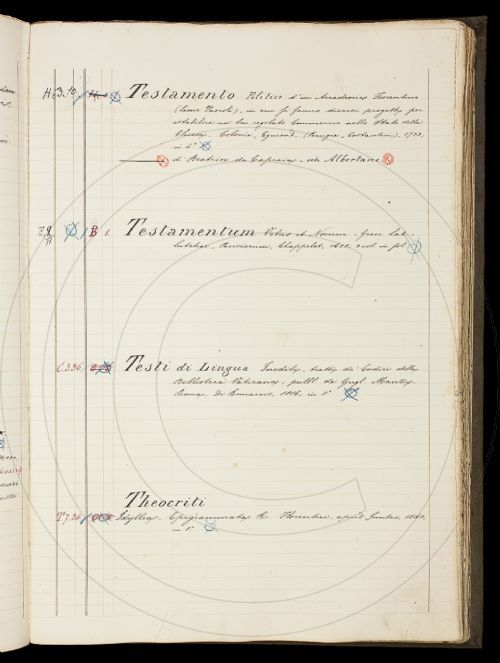 H. 3. 10 Testamento Politico d'un Accademico Fiorentino
(Leone Pascoli), in cui si fanno diversi progetti per
istabilire un ben regolato Commercio nello Stato della
Chiesa. Colonia, Egmond, (Perugia, Costantini), 1733,
in 4°
di Beatrice da Capraia - vedi Albertano
B 1. Testamentum Vetus et Novum. Graec. Lat.
Parisiorum, Chappelet, vol. in fol.
C. 336 Testi di Lingua Inediti, tratti da' Codici della
Biblioteca Vaticana; pubbl. da Gugl. Manzi.
Roma, De Romanis, 1816, in 8°
Theocriti
T. 7. 26 Idyllia, Epigrammata &. Florentiae, apud Juntas, 1540,
in 8°